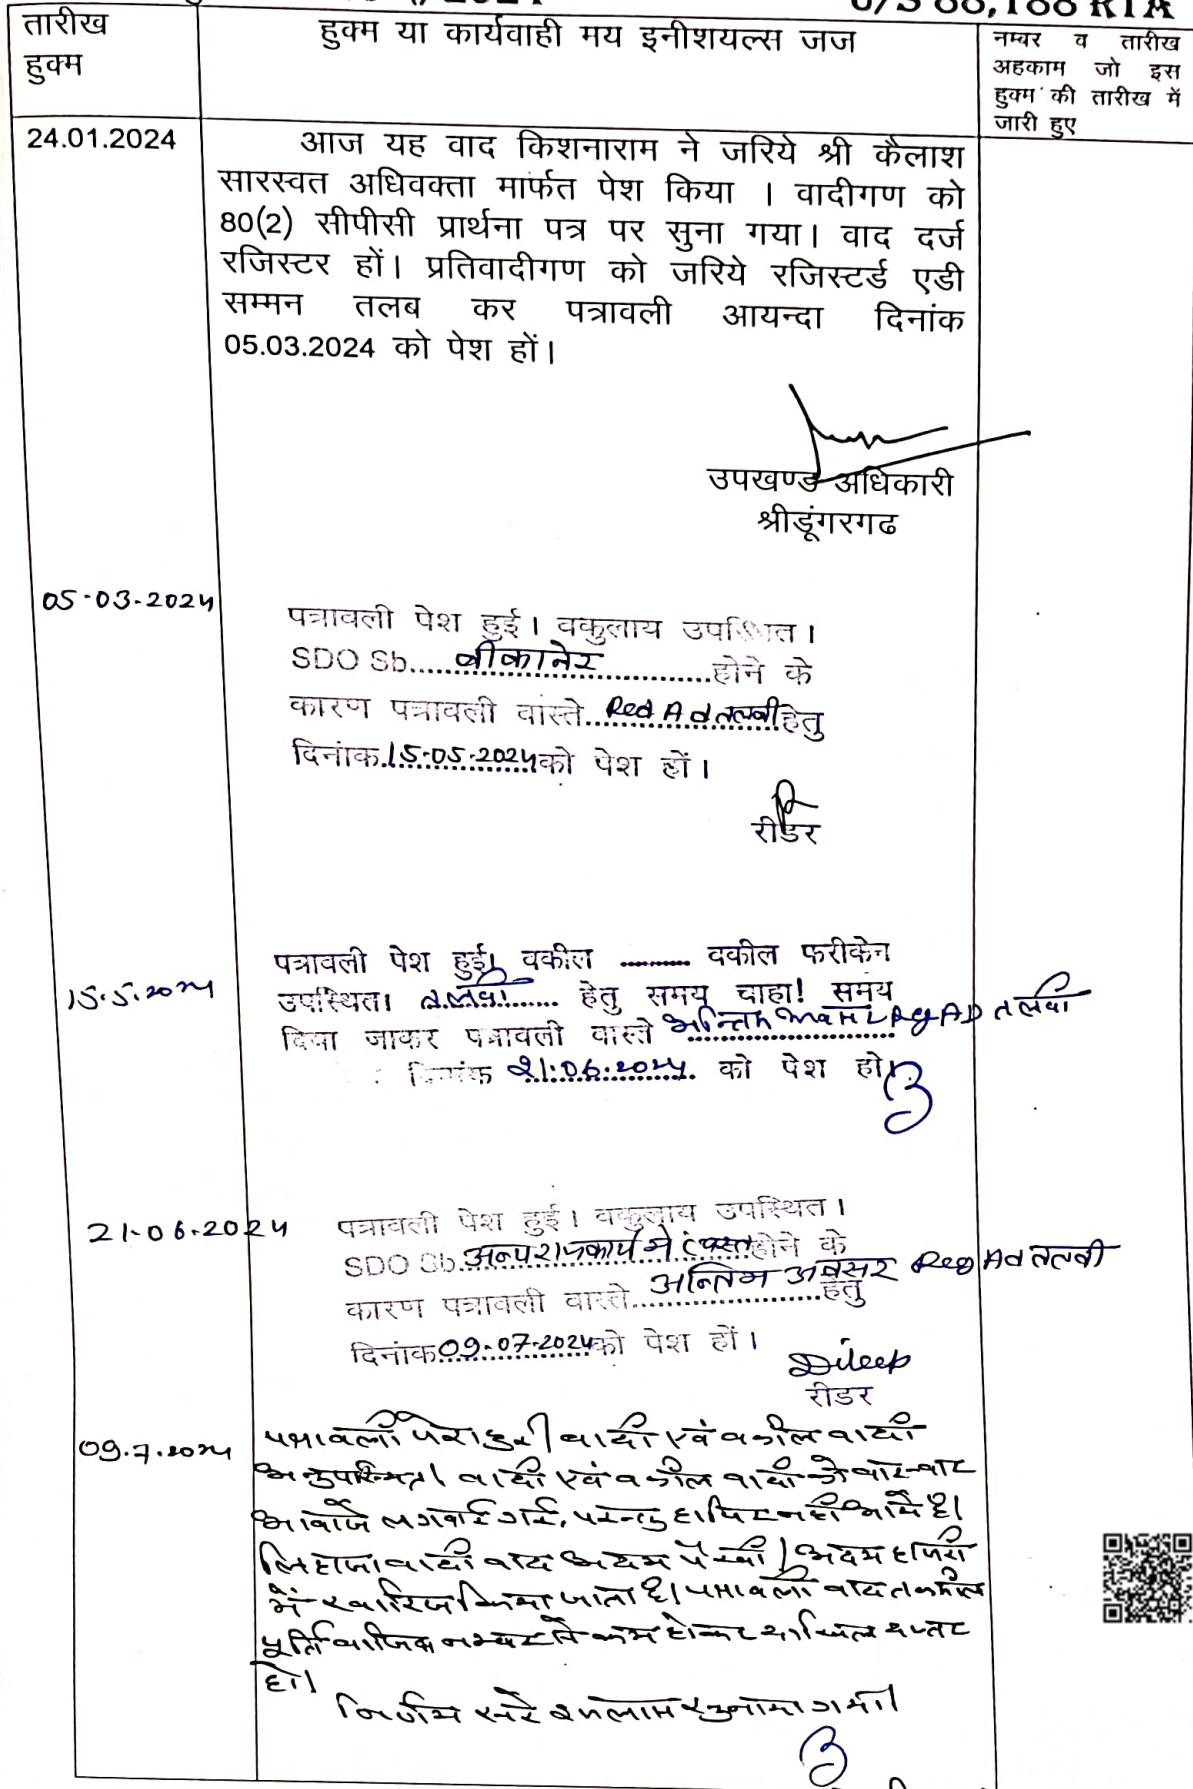 U/S 88,188 RTA
तारीख
हुक्म
हुक्म या कार्यवाही मय इनीशयल्स जज
नम्बर व तारीख
अहकाम जो इस
हुक्म की तारीख में
जारी हुए
24.01.2024
आज यह वाद किशनाराम ने जरिये श्री कैलाश
सारस्वत अधिवक्ता मार्फत पेश किया । वादीगण को
80(2) सीपीसी प्रार्थना पत्र पर सुना गया। वाद दर्ज
रजिस्टर हों। प्रतिवादीगण को जरिये रजिस्टर्ड एडी
सम्मन तलब कर पत्रावली आयन्दा दिनांक
05.03.2024 को पेश हों।
उपखण्ड अधिकारी
श्रीडूंगरगढ
05-03-2024
पत्रावली पेश हुई। वकुलाय उपस्थित।
SDO Sb.....बीकानेर..............होने के
कारण पत्रावली वास्ते..Red A d तलबी हेतु
दिनांक.15-05-2024 को पेश हों।
रीडर
15.5.2024
पत्रावली पेश हुई। वकील .......... वकील फरीकेन
उपस्थित। तलबी...... हेतु समय चाहा! समय
दिया जाकर पत्रावली वास्ते अन्तिम अवसर Reg AD तलबी
दिनांक 21.06.2024. को पेश हो।
21-06-2024
पत्रावली पेश हुई। वकुलाय उपस्थित।
SDO Sb.अन्य राजकार्य मे व्यस्त होने के
कारण पत्रावली वास्ते. अन्तिम अवसर Reg Ad तलबी हेतु
दिनांक 09-07-2024 को पेश हों।
Dileep
रीडर
09.7.2024
पत्रावली पेश हुई। वादी एवं वकील वादी
अनुपस्थित। वादी एवं वकील वादी को बार-बार
आवाजे लगवाई गई, परन्तु हाजिर नहीं आये है।
लिहाजा वादी वाद अदम पैरवी / अदम हाजरी
में खारिज किया जाता है। पत्रावली बाद तकमील
पूर्ति वाजिब नम्बर से कम होकर दाखिल दफ्तर
हो।
निर्णय सरे इजलास सुनाया गया।